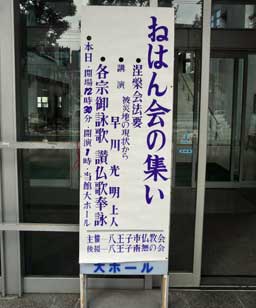 ねはん会の集い
●涅槃会法要
●講演 被災地の現状から
早川光明上人
●各宗御詠歌 讃仏歌奉詠
●本日・開場12時30分・開演1時・当館大ホール
主催―八王子市仏教会
後援―八王子市南無の会
大ホール